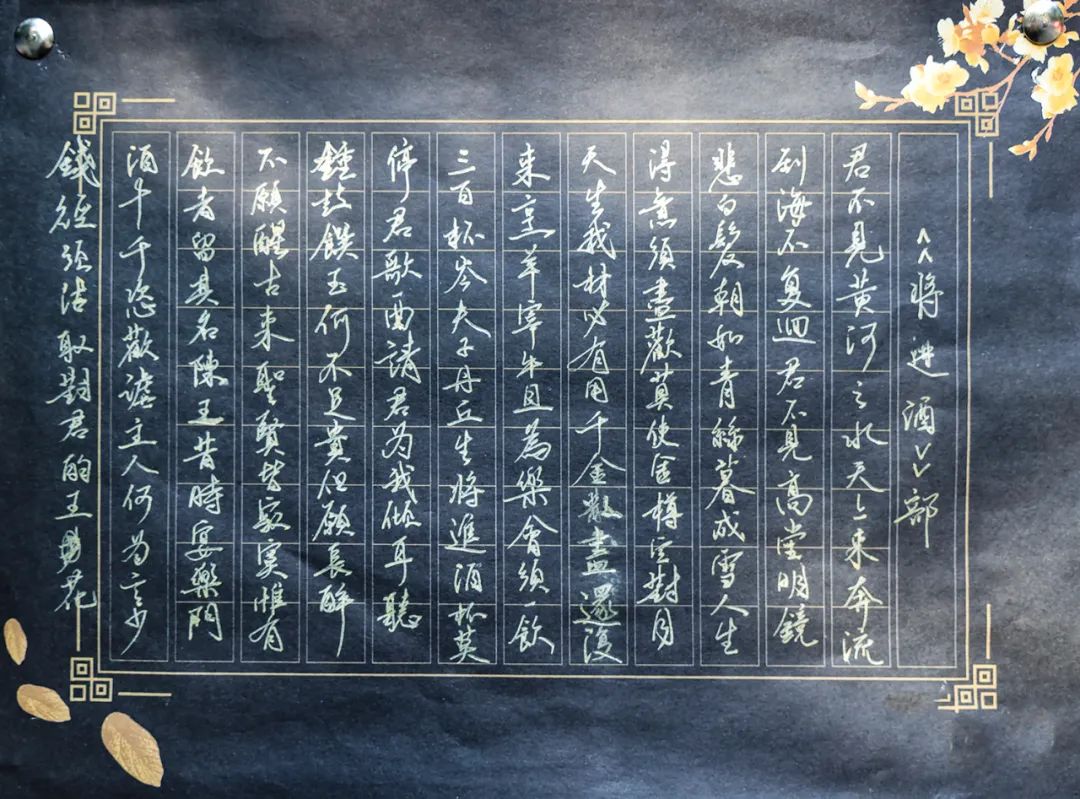 《将进酒》部
君不見黄河之水天上来奔流
到海不复迴君不見高堂明鏡
悲白髮朝如青絲暮成雪人生
得意須盡歡莫使金樽空對月
天生我材必有用千金散盡還復
来烹羊宰牛且為樂會須一飲
三百杯岑夫子丹丘生將進酒杯莫
停君歌曲請君为我倾耳聽
鐘鼓饌玉何不足貴但願長醉
不願醒古来聖賢皆寂寞惟有
飲者留其名陳王昔時宴樂
酒斗千恣歡謔主人何为言少
錢徑須沽取對君酌王花